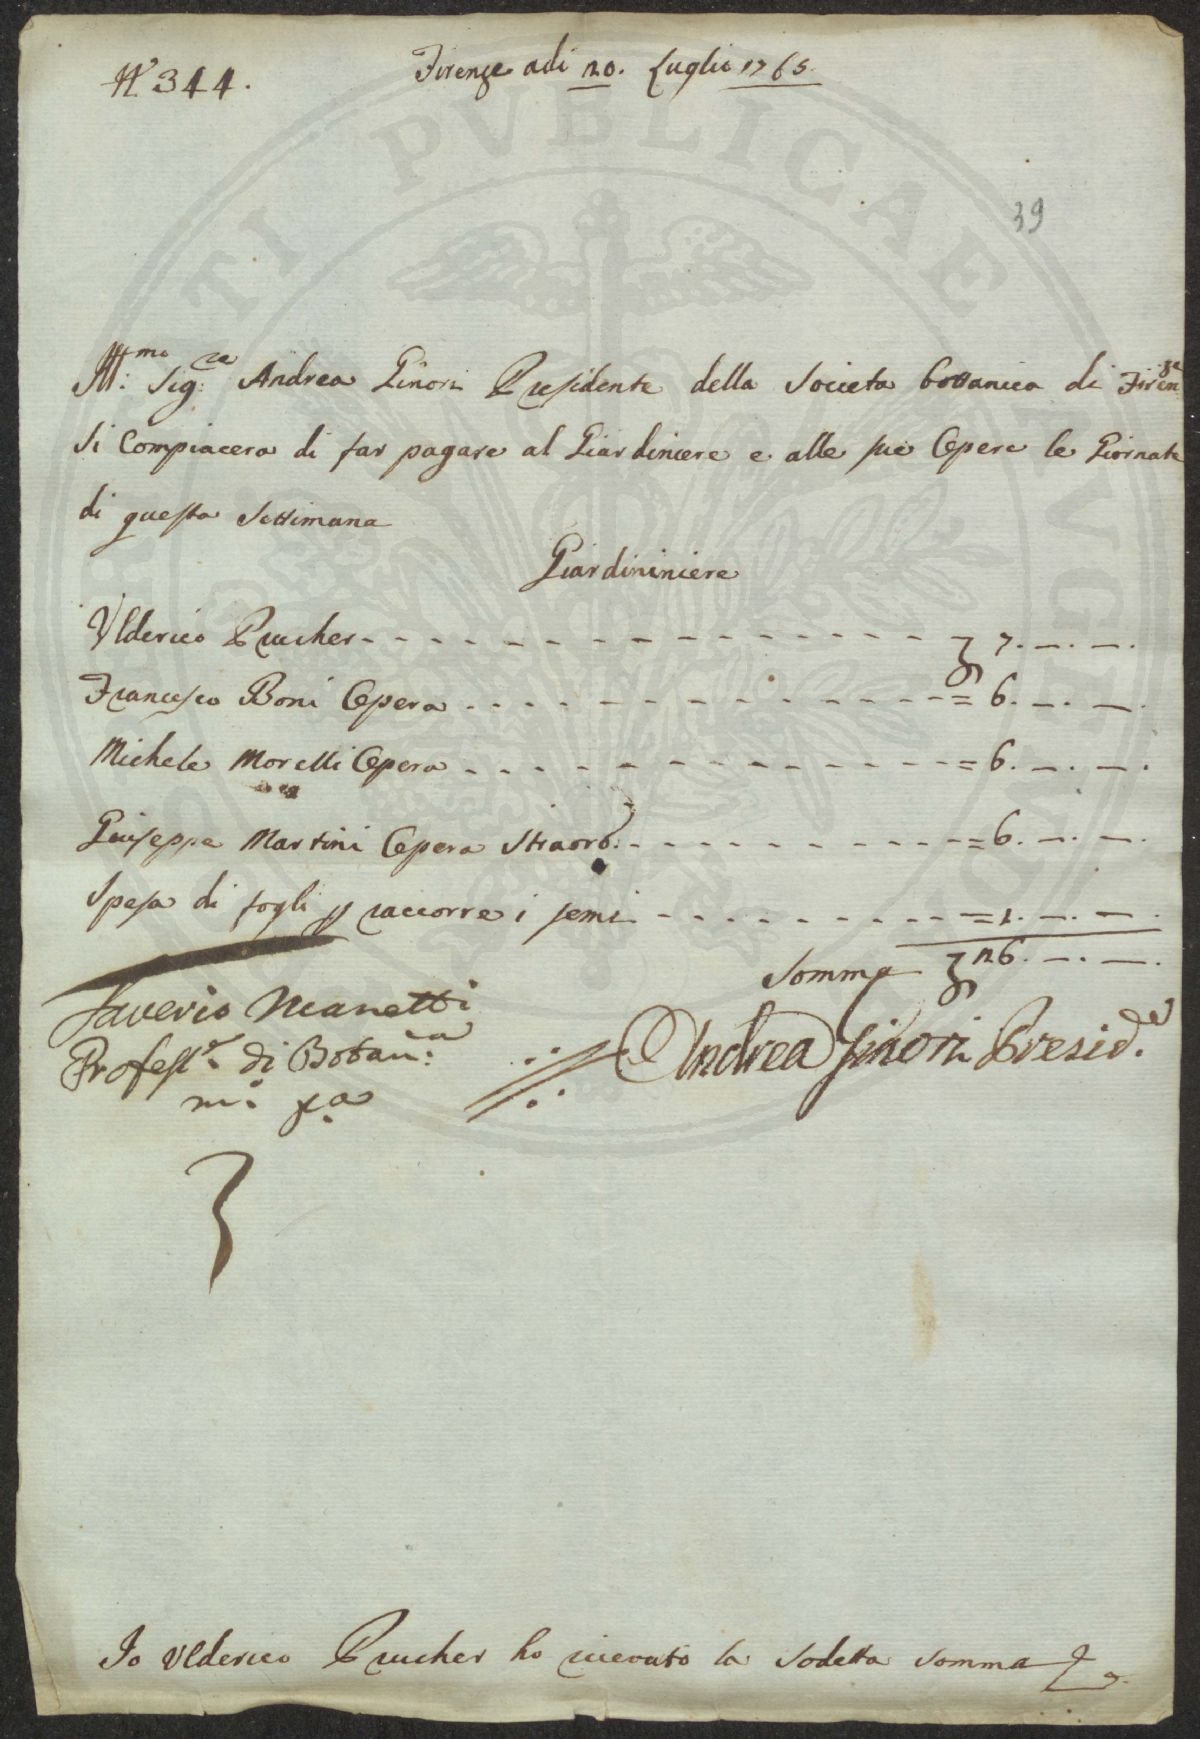 N.° 344.
Firenze adi 20. Luglio 1765.
39
Ill:mo Sig:re Andrea Ginori Presidente della Societa bottanica di Firenze
Si Compiacera di far pagare al Giardiniere e alle sue Opere le Giornate
di questa Settimana
Giardininiere
Ulderico Prucher - - - 7. —. —.
Francesco Boni Opera - - - = 6. —. —.
Michele Morelli Opera - - - = 6. —. —.
Giuseppe Martini Opera Straord: - - - = 6. —. —.
Spesa di fogli p raccorre i semi - - - = 1. —. —.
Somma 26. —. —.
Saverio Manetti
Profess.e di Botan:ca
m.° p.a
Andrea Ginori Presid.te
Io Ulderico Prucher ho ricevuto la Sodetta Somma
TI PVBLICAE